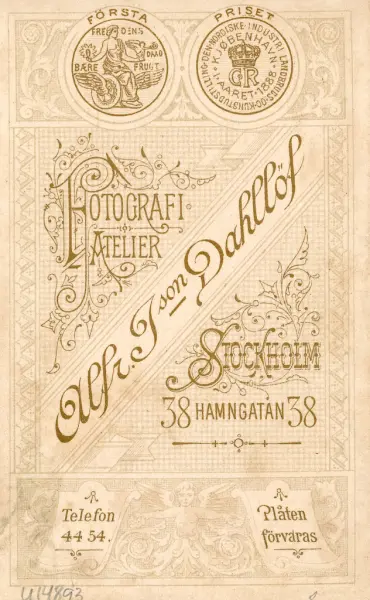 FÖRSTA PRISET
FREDENS DAAD
BÆRE FRUGT.
DEN NORDISKE INDUSTRI LANDBRUGS-OG KUNSTUDSTILLING
I KJØBENHAVN
AARET 1888
FOTOGRAFI
ATELIER
Alfr. Json Dahllöf
STOCKHOLM
38 HAMNGATAN 38
Telefon
44 54.
Plåten
förvaras
U14893